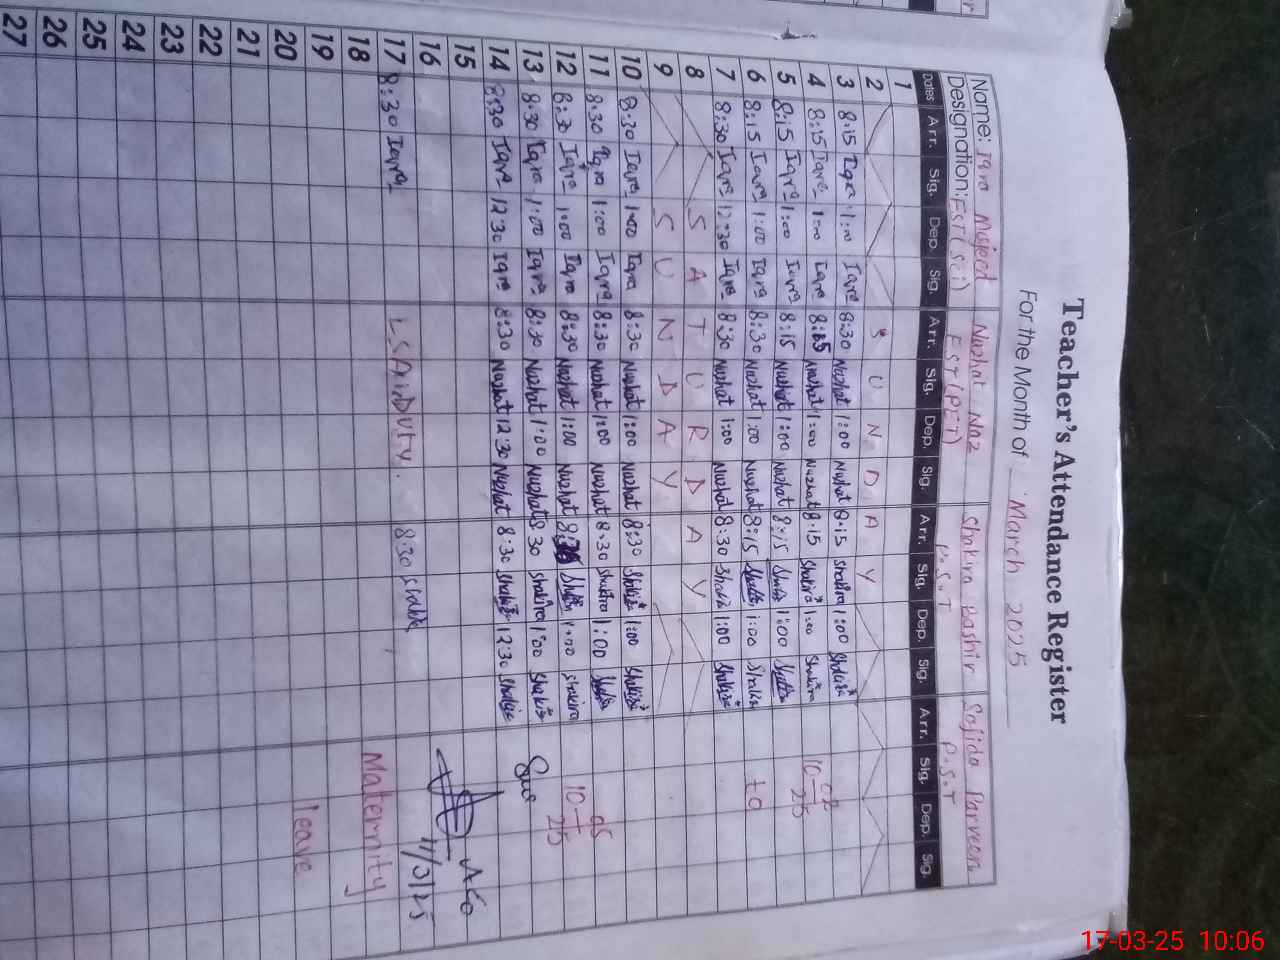 Teacher's Attendance Register
For the Month of March 2025
Name: Iqra Majeed Nuzhat Naz Shakira Bashir Sajida Parveen
Designation: EST (Sci) EST (PET) P.S.T P.S.T
Dates Arr. Sig. Dep. Sig. Arr. Sig. Dep. Sig. Arr. Sig. Dep. Sig. Arr. Sig. Dep. Sig.
1
2 S U N D A Y
3 8:15 Iqra 1:00 Iqra 8:30 Nuzhat 1:00 Nuzhat 8:15 Shakira 1:00 Shakira
4 8:15 Iqra 1:00 Iqra 8:15 Nuzhat 1:00 Nuzhat 8:15 Shakira 1:00 Shakira 10-02-25
5 8:15 Iqra 1:00 Iqra 8:15 Nuzhat 1:00 Nuzhat 8:15 Shakira 1:00 Shakira
6 8:15 Iqra 1:00 Iqra 8:30 Nuzhat 1:00 Nuzhat 8:15 Shakira 1:00 Shakira to
7 8:30 Iqra 12:30 Iqra 8:30 Nuzhat 1:00 Nuzhat 8:30 Shakira 1:00 Shakira
8 S A T U R D A Y
9 S U N D A Y
10 8:30 Iqra 1:00 Iqra 8:30 Nuzhat 1:00 Nuzhat 8:30 Shakira 1:00 Shakira
11 8:30 Iqra 1:00 Iqra 8:30 Nuzhat 1:00 Nuzhat 8:30 Shakira 1:00 Shakira
12 8:30 Iqra 1:00 Iqra 8:30 Nuzhat 1:00 Nuzhat 8:30 Shakira 1:00 Shakira 10-05-25
13 8:30 Iqra 1:00 Iqra 8:30 Nuzhat 1:00 Nuzhat 8:30 Shakira 1:00 Shakira
14 8:30 Iqra 12:30 Iqra 8:30 Nuzhat 12:30 Nuzhat 8:30 Shakira 12:30 Shakira
15 AEO
16 11/3/25
17 8:30 Iqra LSA in Duty. 8:30 Shakira
18 Maternity
19
20 leave
21
22
23
24
25
26
27
17-03-25 10:06